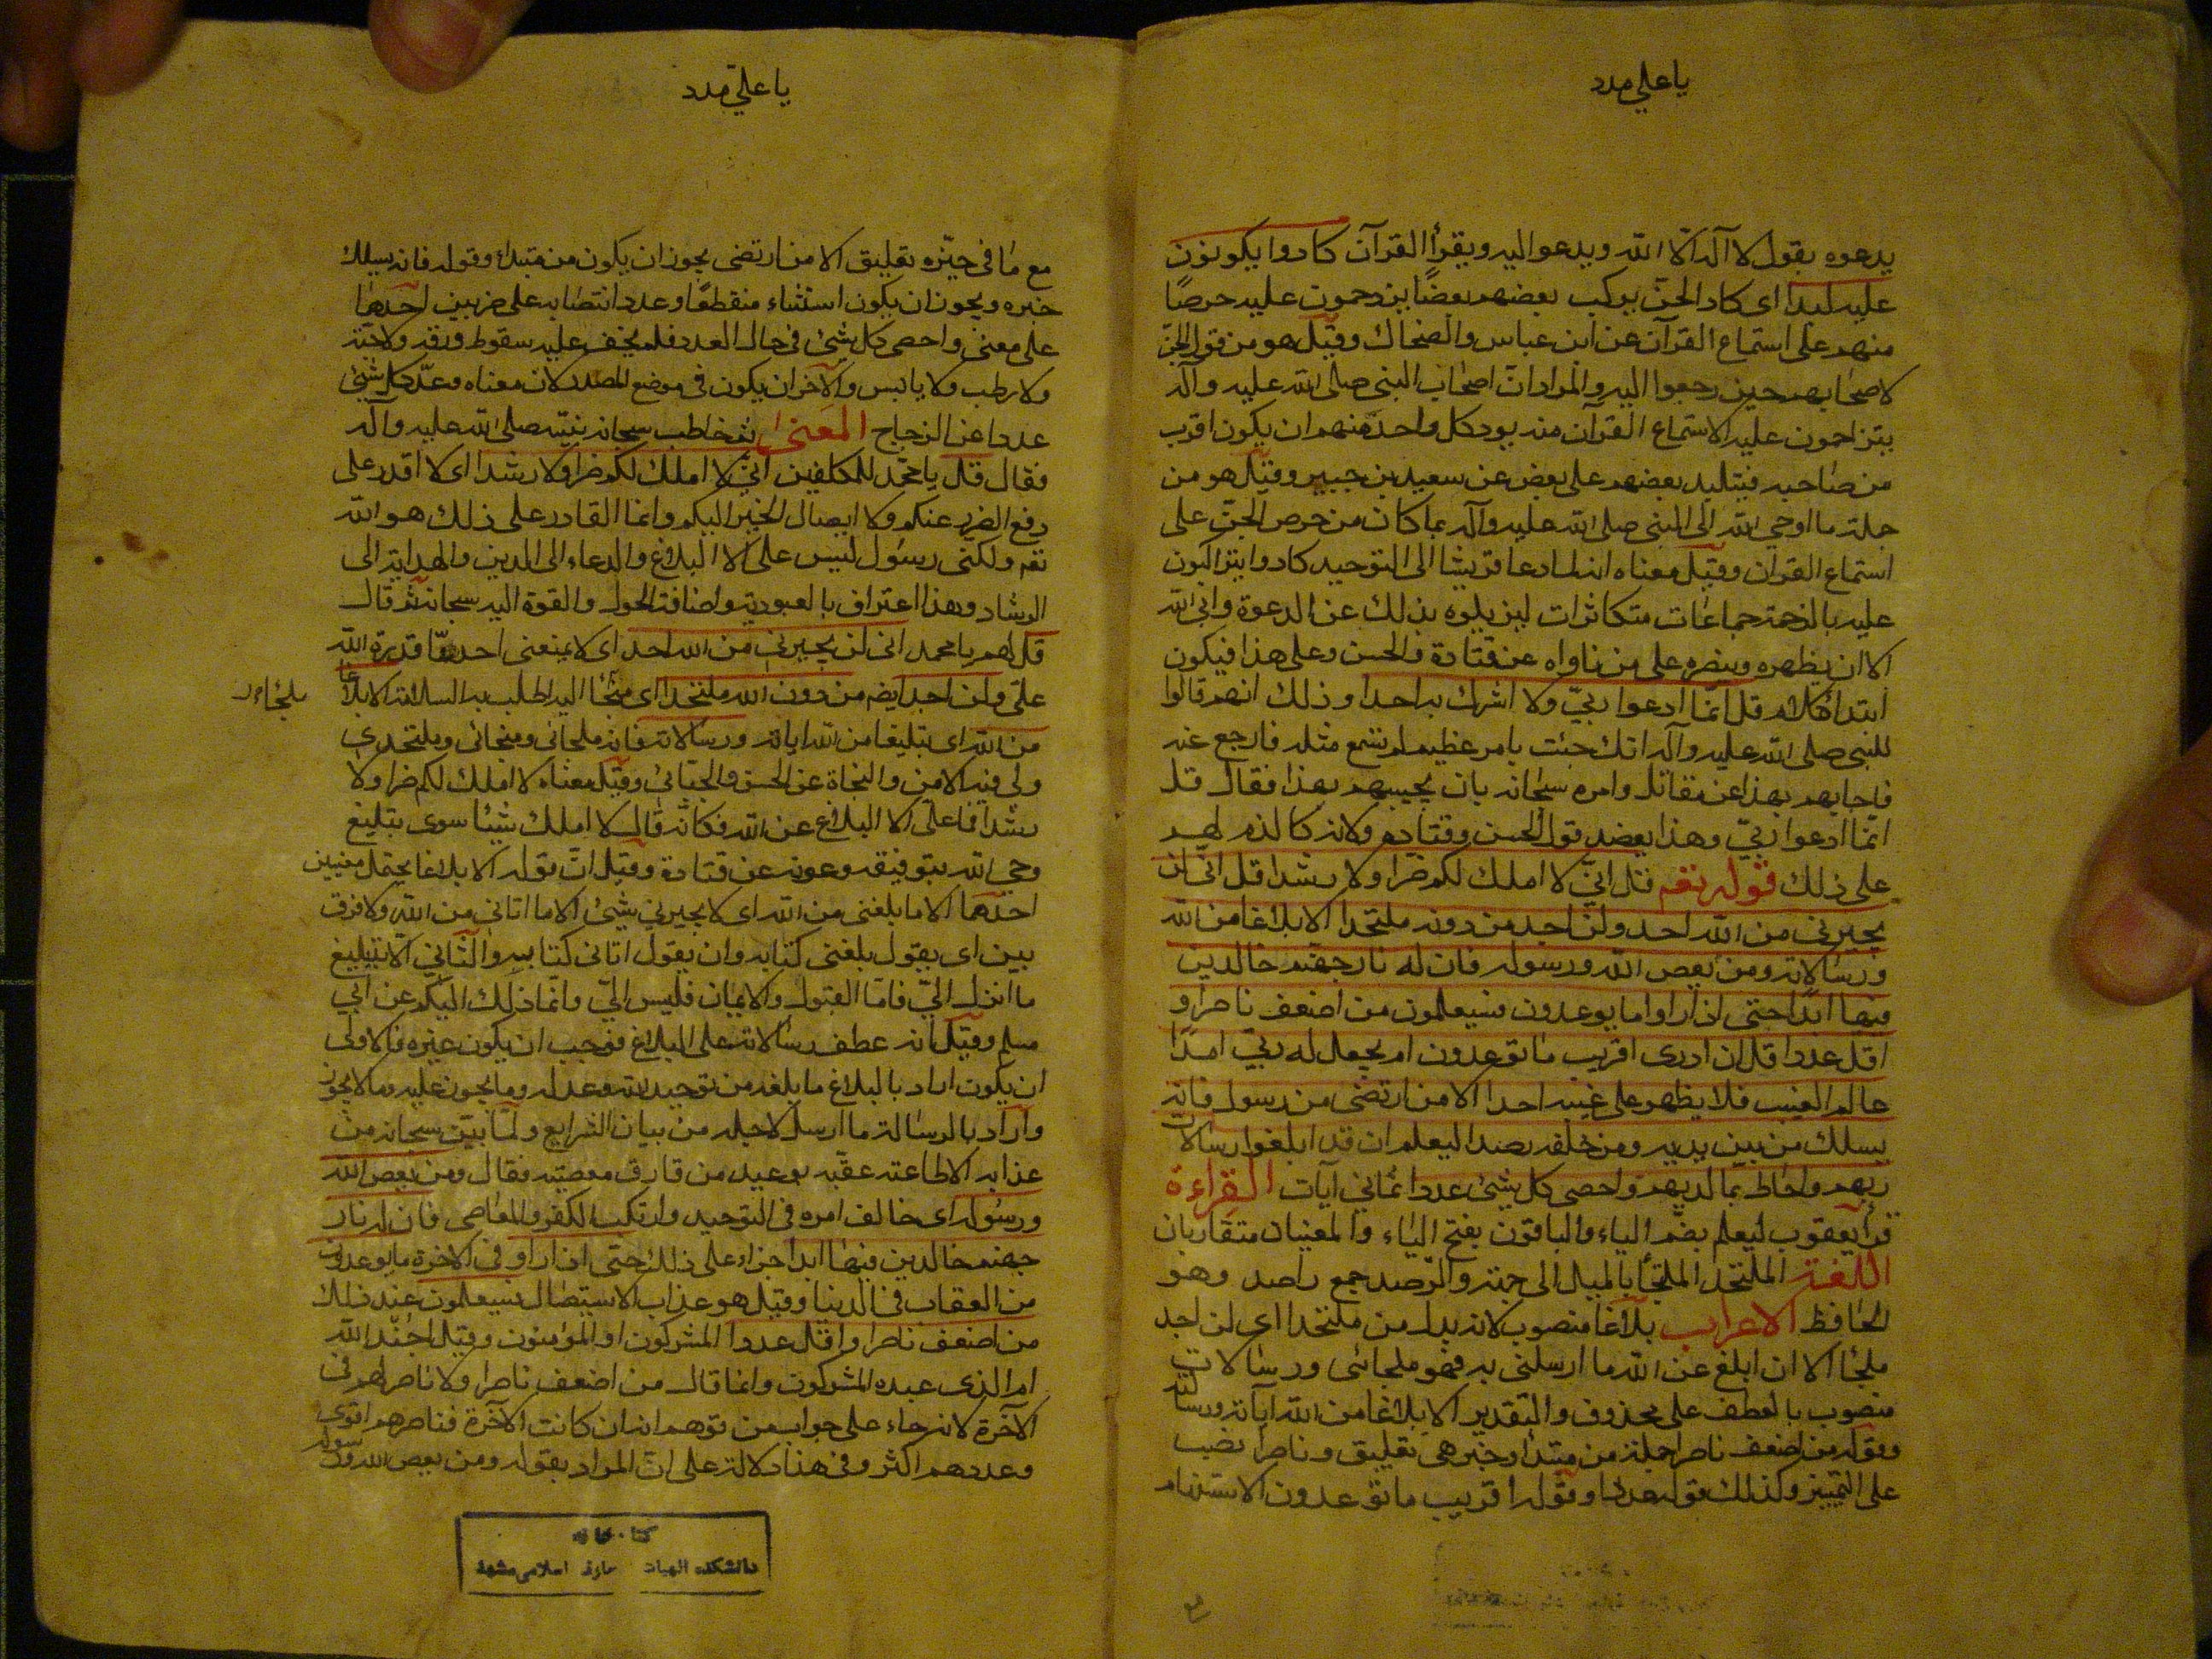 يا علي مدد
يدعوه بقول لا آله الّا الله ويدعو اليه ويقرأ القرآن كادوا يكونون
عليه لبدا اى كاد الجنّ يركب بعضهم بعضًا يزدحمون عليه حرصًا
منهم على استماع القرآن عن ابن عباس والضحاك وقيل هو من قول الجنّ
لاصحابهم حين رجعوا اليهم والمراد انّ اصحاب النبى صلى الله عليه وآله
يتزاحمون عليه لاستماع القرآن منه يود كل واحد منهم ان يكون اقرب
من صاحبه فيتلبد بعضهم على بعض عن سعيد بن جبير وقيل هو من
جملة ما اوحى الله الى النبى صلى الله عليه وآله بما كان من حرص الجنّ على
استماع القران وقيل معناه انه لما دعا قريشا الى التوحيد كادوا يتراكبون
عليه بالزحمة جماعات متكاثرات ليزيلوه بذلك عن الدعوة وابى الله
الا ان يظهره وينصره على من ناواه عن قتادة والحسن وعلى هذا فيكون
ابتداء كلام قل انّما ادعوا ربّي ولا اشرك به احدا وذلك انهم قالوا
للنبى صلى الله عليه وآله انك جئت بامر عظيم لم نسمع مثله فارجع عنه
فاجابهم بهذا عن مقاتل وامره سبحانه بان يجيبهم بهذا فقال قل
انّما ادعوا ربّي وهذا يعضد قول الحسن وقتادة ولانه كالذم لهم
على ذلك قوله تعه قل انّي لا املك لكم ضرّا ولا رشدا قل انّي لن
يجيرني من الله احد ولن اجد من دونه ملتحدا الا بلاغا من الله
ورسالاته ومن يعص الله ورسوله فان له نار جهنّم خالدين
فيها ابدًا حتى اذا راوا ما يوعدون فسيعلمون من اضعف ناصرا و
اقل عددا قل ان ادرى اقريب ما توعدون ام يجعل له ربّي امدًا
عالم الغيب فلا يظهر على غيبه احدا الا من ارتضى من رسول فانه
يسلك من بين يديه ومن خلفه رصدا ليعلم ان قد ابلغوا رسالات
ربهم واحاط بما لديهم واحصى كل شئ عددا ثماني آيات القراءة
قرأ يعقوب ليعلم بضم الياء والباقون بفتح الياء والمعنيان متقاربان
اللغة الملتحد الملتجأ بالميل الى جهة والرّصد جمع راصد وهو
الحافظ الاعراب بلاغا منصوب لانه بدل من ملتحدا اى لن اجد
ملجأ الا ان ابلغ عن الله ما ارسلني به فهو ملجائى ورسالاته
منصوب بالعطف على محذوف والتقدير الا بلاغا من الله آياته ورسالته
وقوله من اضعف ناصرا جملة من مبتدا وخبر هي تعليق وناصرا نصب
على التمييز وكذلك قوله عددا وقوله اقريب ما توعدون الاستفهام
يا علي مدد
مع ما في حيّزه تعليق الا من ارتضى يجوز ان يكون من مبتداء وقوله فانه يسلك
خبره ويجوز ان يكون استثناء منقطعًا وعددا انتصابه على ضربين احدهما
على معنى واحصى كل شئ في حال العدد فلم يخف عليه سقوط ورقه ولا حبّة
ولا رطب ولا يابس والآخر ان يكون في موضع المصدر لان معناه وعدّ كل شئ
عددا عن الزجاج المعنى ثم خاطب سبحانه نبيّه صلى الله عليه وآله
فقال قل يا محمّد للمكلفين انّي لا املك لكم ضرا ولا رشدا اى لا اقدر على
دفع الضرر عنكم ولا ايصال الخير اليكم وانما القادر على ذلك هو الله
تعه ولكنى رسول ليس على الا البلاغ والدعاء الى الدين والهداية الى
الرشاد وهذا اعتراف بالعبودية واضافة الحول والقوة اليه سبحانه ثم قال
قل لهم يا محمد انى لن يجيرني من الله احد اى لا يمنعنى احد ممّا قدره الله
علىّ ولن اجد ايضم من دون الله ملتحدا اى منجًا اليه اطلب به السلامة الا بلاغا
ملجاء
من الله اى تبليغا من الله اياته ورسالاته فانه ملجائى ومنجائى وملتحدى
ولى فيه الامن والنجاة عن الحسن والجبّائي وقيل معناه لا املك لكم ضرا ولا
رشدا فما علىّ الا البلاغ عن الله فكانه قال لا املك شيئا سوى تبليغ
وحي الله بتوفيقه وعونه عن قتادة وقيل انّ قوله الا بلاغا يحتمل معنيين
احدهما الا ما بلغنى من الله اى لا يجيرني شئ الا ما اتاني من الله ولا فرق
بين اى يقول بلغنى كتابه وان يقول اتانى كتابه والثاني الا تبليغ
ما انزل اليّ فامّا القبول والايمان فليس اليّ وانّما ذلك اليكم عن ابي
مسلم وقيل انه عطف رسالاته على البلاغ فوجب ان يكون غيره فالاولى
ان يكون اراد بالبلاغ ما بلغه من توحيد الله وعدله وما يجوز عليه وما لا يجوز
واراد بالرسالة ما ارسل لاجله من بيان الشرايع ولمّا بيّن سبحانه من
عذابه الا طاعته عقّبه بوعيد من قارف معصيته فقال ومن يعص الله
ورسوله اى خالف امره في التوحيد وارتكب الكفر والمعاصى فان له نار
جهنم خالدين فيها ابدا جزاء على ذلك حتى اذا راوا في الاخرة ما يوعدون
من العقاب في الدنيا وقيل هو عذاب الاستيصال فسيعلمون عند ذلك
من اضعف ناصرا واقل عددا المشركون او المؤمنون وقيل اجند الله
ام الذى عبده المشركون وانما قال من اضعف ناصرا ولا ناصر لهم في
الآخرة لانه جاء على جواب من توهم انه ان كانت الآخرة فناصرهم اقوى
وعددهم اكثر وفي هذا دلالة على انّ المراد بقوله ومن يعص الله ورسوله
كتابخانه
دانشكده الهيات ومعارف اسلامى مشهد